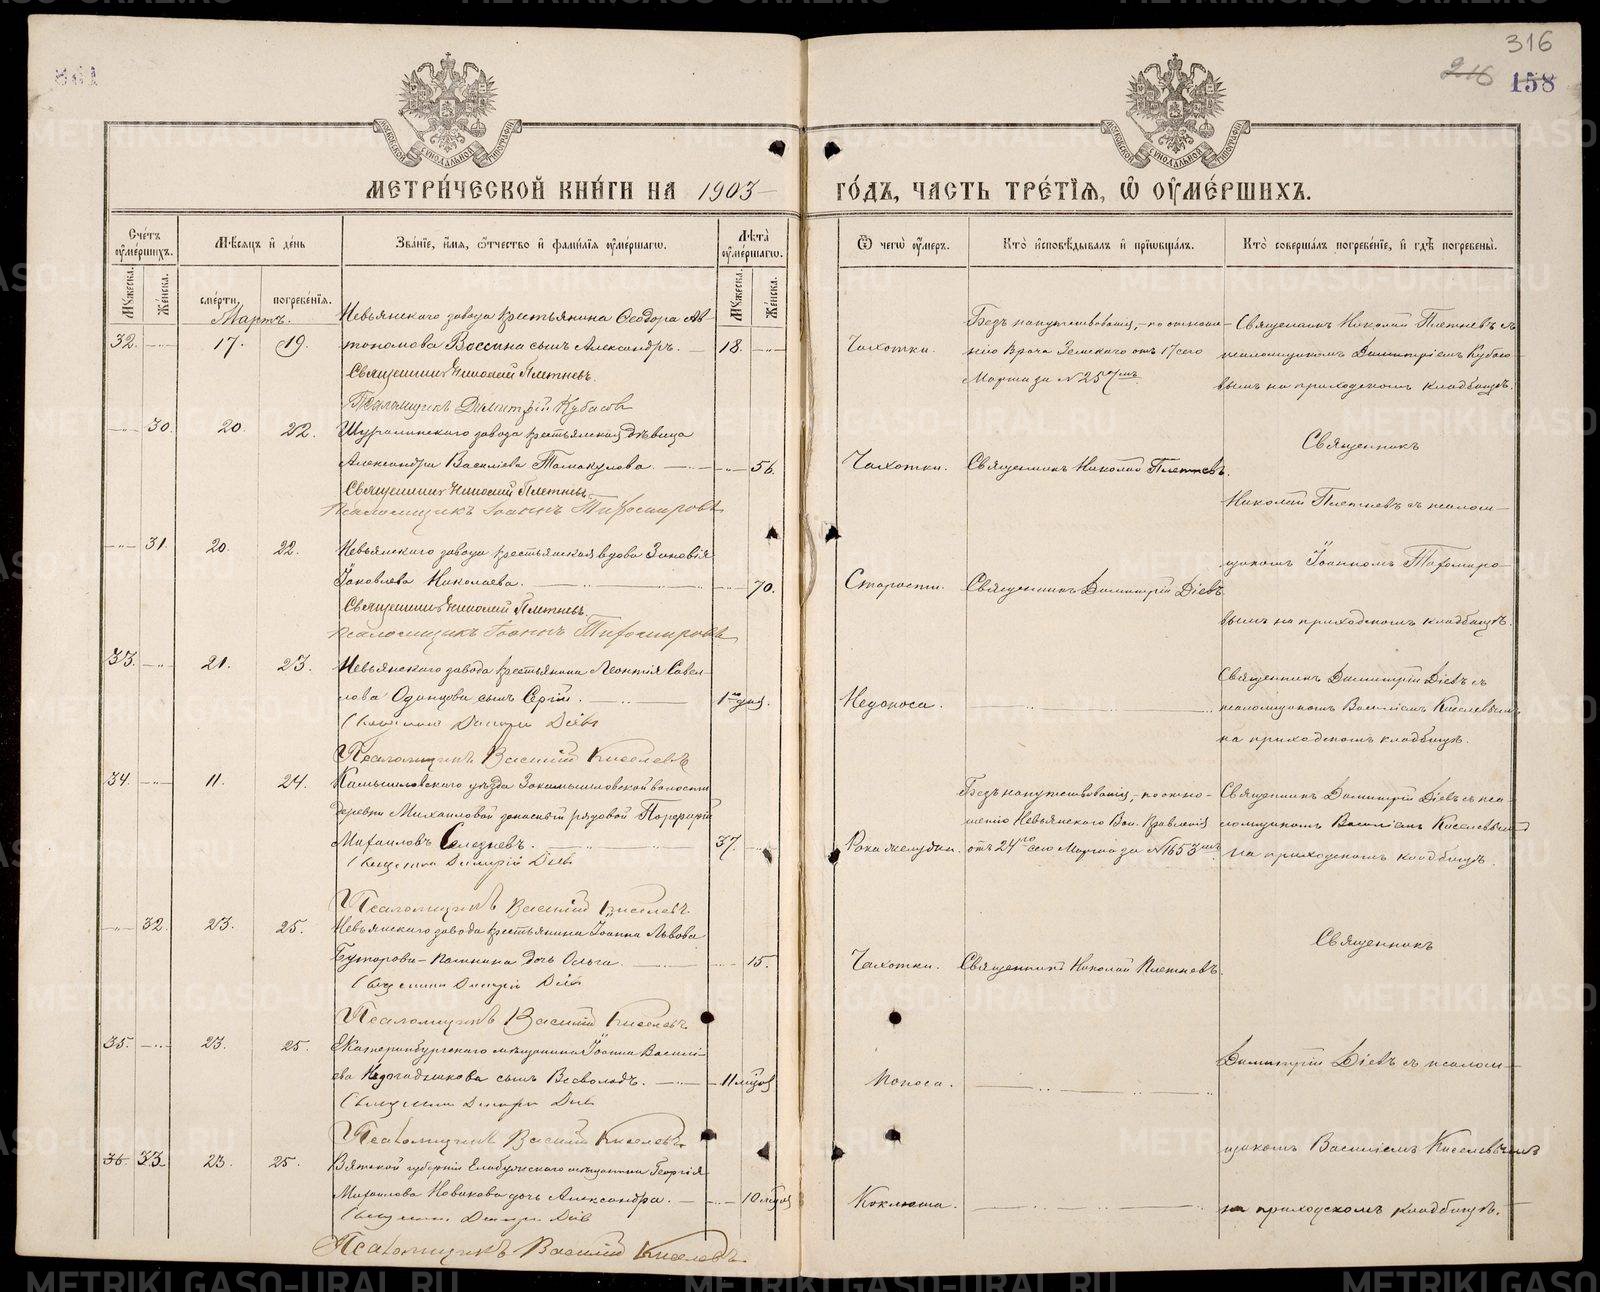 316
216
158
МЕТРИ́ЧЕСКОЙ КНИ́ГИ НА 1903
ГО́ДЪ, ЧАСТЬ ТРЕ́ТЇЯ, Ѿ ОУ҆МЕ́РШИХЪ.
Сче́тъ оу҆ме́ршихъ.
Мꙋжеска.
Же́нска.
Мѣсяцъ и҆ де́нь
сме́рти,
погребе́нїя.
Зва́нїе, и҆́мя, ѻ҆́тчество и҆ фами́лїя оу҆ме́ршагѡ.
Лѣта̀ оу҆ме́ршагѡ.
Мꙋжеска.
Же́нска.
Ѿ чегѡ̀ оу҆́меръ.
Кто̀ и҆сповѣ́дывалъ и҆ прїѡбща́лъ.
Кто̀ соверша́лъ погребе́нїе, и҆ гдѣ̀ погребены̀.
Мартъ.
32. 17. 19.
Невьянскаго завода крестьянина Ѳеодора Ав-
тономова Вассина сынъ Александръ. 18.
Священникъ Николай Плетневъ.
Псаломщикъ Димитрій Кубасовъ
Чахотки.
Безъ напутствованія, - по отноше-
нію Врача Земскаго отъ 17 сего
Марта за №25
Священникъ Николай Плетневъ съ
псаломщикомъ Димитріемъ Кубасо-
вымъ на приходскомъ кладбищѣ.
30. 20. 22.
Шуралинскаго завода крестьянская дѣвица
Александра Василіева Томакулова. 56.
Священникъ Николай Плетневъ
Псаломщикъ Іоаннъ Тифомировъ
Чахотки. Священникъ Николай Плетневъ.
Священникъ
Николай Плетневъ съ псалом-
31. 20. 22.
Невьянскаго завода крестьянская вдова Зиновія
Іаковлева Николаева. 70.
Священникъ Николай Плетневъ.
Псаломщикъ Іоаннъ Тифомировъ
Старости. Священникъ Димитрій Діевъ
щикомъ Іоанномъ
вымъ на приходскомъ кладбищѣ.
33. 21. 23.
Невьянскаго завода крестьянина Леонтія Савел-
лова Одинцова сынъ Сергій. 1 дня.
Священникъ Димитрій Діевъ
Псаломщикъ Василій Киселевъ
Недоноса.
Священникъ Димитрій Діевъ съ
псаломщикомъ Василіемъ Киселевымъ
на приходскомъ кладбищѣ.
34. 11. 24.
Камышловскаго уѣзда Закамышловской волости
деревни Михайловой запасный рядовой Порфирій
Михаиловъ Селезневъ. 37.
Священникъ Димитрій Діевъ
Псаломщикъ Василій Киселевъ
Рака желудка.
Безъ напутствованія, - по отно-
шенію Невьянскаго Вол. Правленія
отъ 24 сего Марта за №1653
Священникъ Димитрій Діевъ съ пса-
ломщикомъ Василіемъ Киселевымъ
на приходскомъ кладбищѣ.
32. 23. 25.
Невьянскаго завода крестьянина Іоанна Львова
Буторова-Калинина дочь Ольга. 15.
Священникъ Димитрій Діевъ
Псаломщикъ Василій Киселевъ
Чахотки. Священникъ Николай Плетневъ.
Священникъ
35. 23. 25.
Екатеринбургскаго мѣщанина Іоанна Василі-
ева сынъ Всеволодъ. 11 мѣся
Священникъ Димитрій Діевъ
Псаломщикъ Василій Киселевъ
Поноса.
Димитрій Діевъ съ псалом-
36 33. 23. 25.
Вятской губерніи Елабужскаго мѣщанина Георгія
Михаилова Новикова дочь Александра. 10 мѣся
Священникъ Димитрій Діевъ
Псаломщикъ Василій Киселевъ.
Коклюша.
щикомъ Василіемъ Киселевымъ
на приходскомъ кладбищѣ.
METRIKI.GASO-URAL.RU